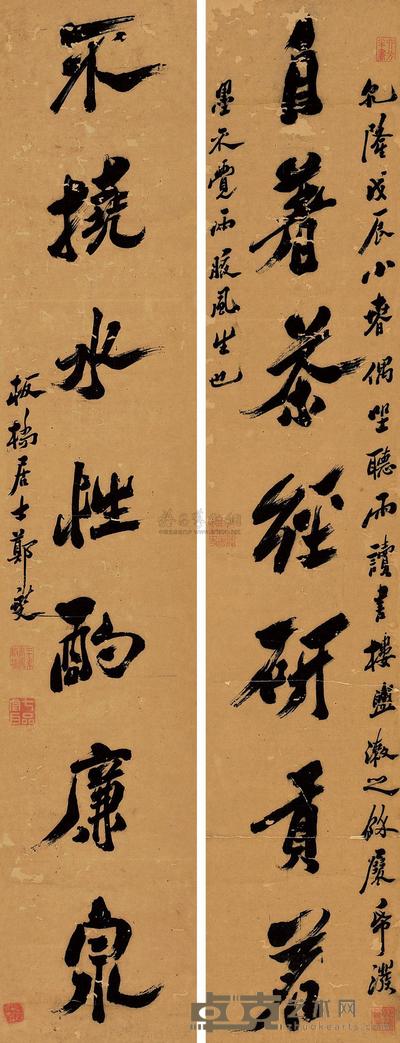 乾隆戊辰小春偶坐聽雨讀書樓盥漱之餘展帋潑
自著茶經研貢茗
墨不覺兩腋風生也
不撓水性酌廉泉
板橋居士鄭燮
卓克艺术网